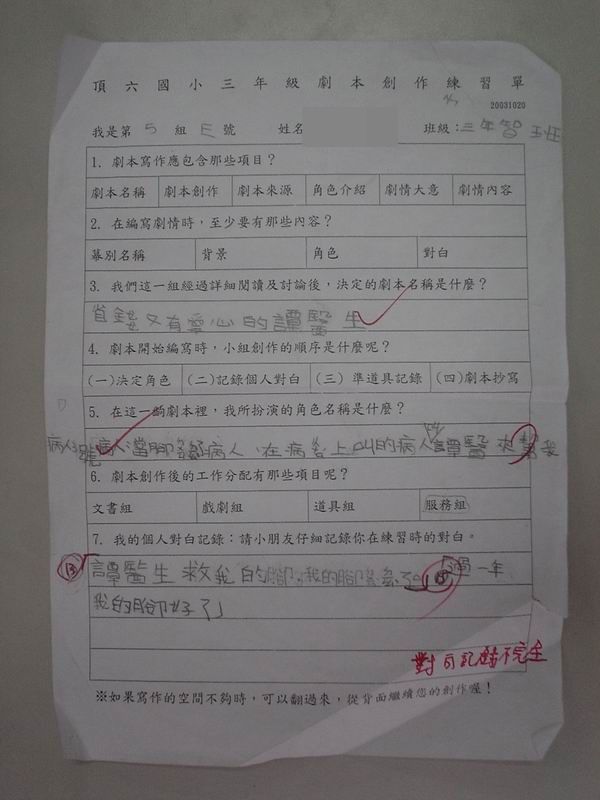 頂六國小三年級劇本創作練習單
20031020
我是第 5 組 E 號 姓名 班級：三年智班
1. 劇本寫作應包含那些項目？
劇本名稱 劇本創作 劇本來源 角色介紹 劇情大意 劇情內容
2. 在編寫劇情時，至少要有那些內容？
幕別名稱 背景 角色 對白
3. 我們這一組經過詳細閱讀及討論後，決定的劇本名稱是什麼？
省錢又有愛心的譚醫生
4. 劇本開始編寫時，小組創作的順序是什麼呢？
(一)決定角色 (二)記錄個人對白 (三) 準道具記錄 (四)劇本抄寫
5. 在這一齣劇本裡，我所扮演的角色名稱是什麼？
當腳 病人、在病 上叫的病人 譚醫 來幫我
6. 劇本創作後的工作分配有那些項目呢？
文書組 戲劇組 道具組 服務組
7. 我的個人對白記錄：請小朋友仔細記錄你在練習時的對白。
譚醫生救我的腳，我的腳 了 過一年
我的腳好了」
對白記錄不完全
※如果寫作的空間不夠時，可以翻過來，從背面繼續您的創作喔！